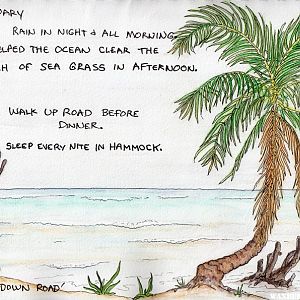 RAIN IN NIGHT & ALL MORNING.
THE OCEAN CLEAR THE
OF SEA GRASS IN AFTERNOON.
WALK UP ROAD BEFORE
DINNER.
SLEEP EVERY NITE IN HAMMOCK.
DOWN ROAD